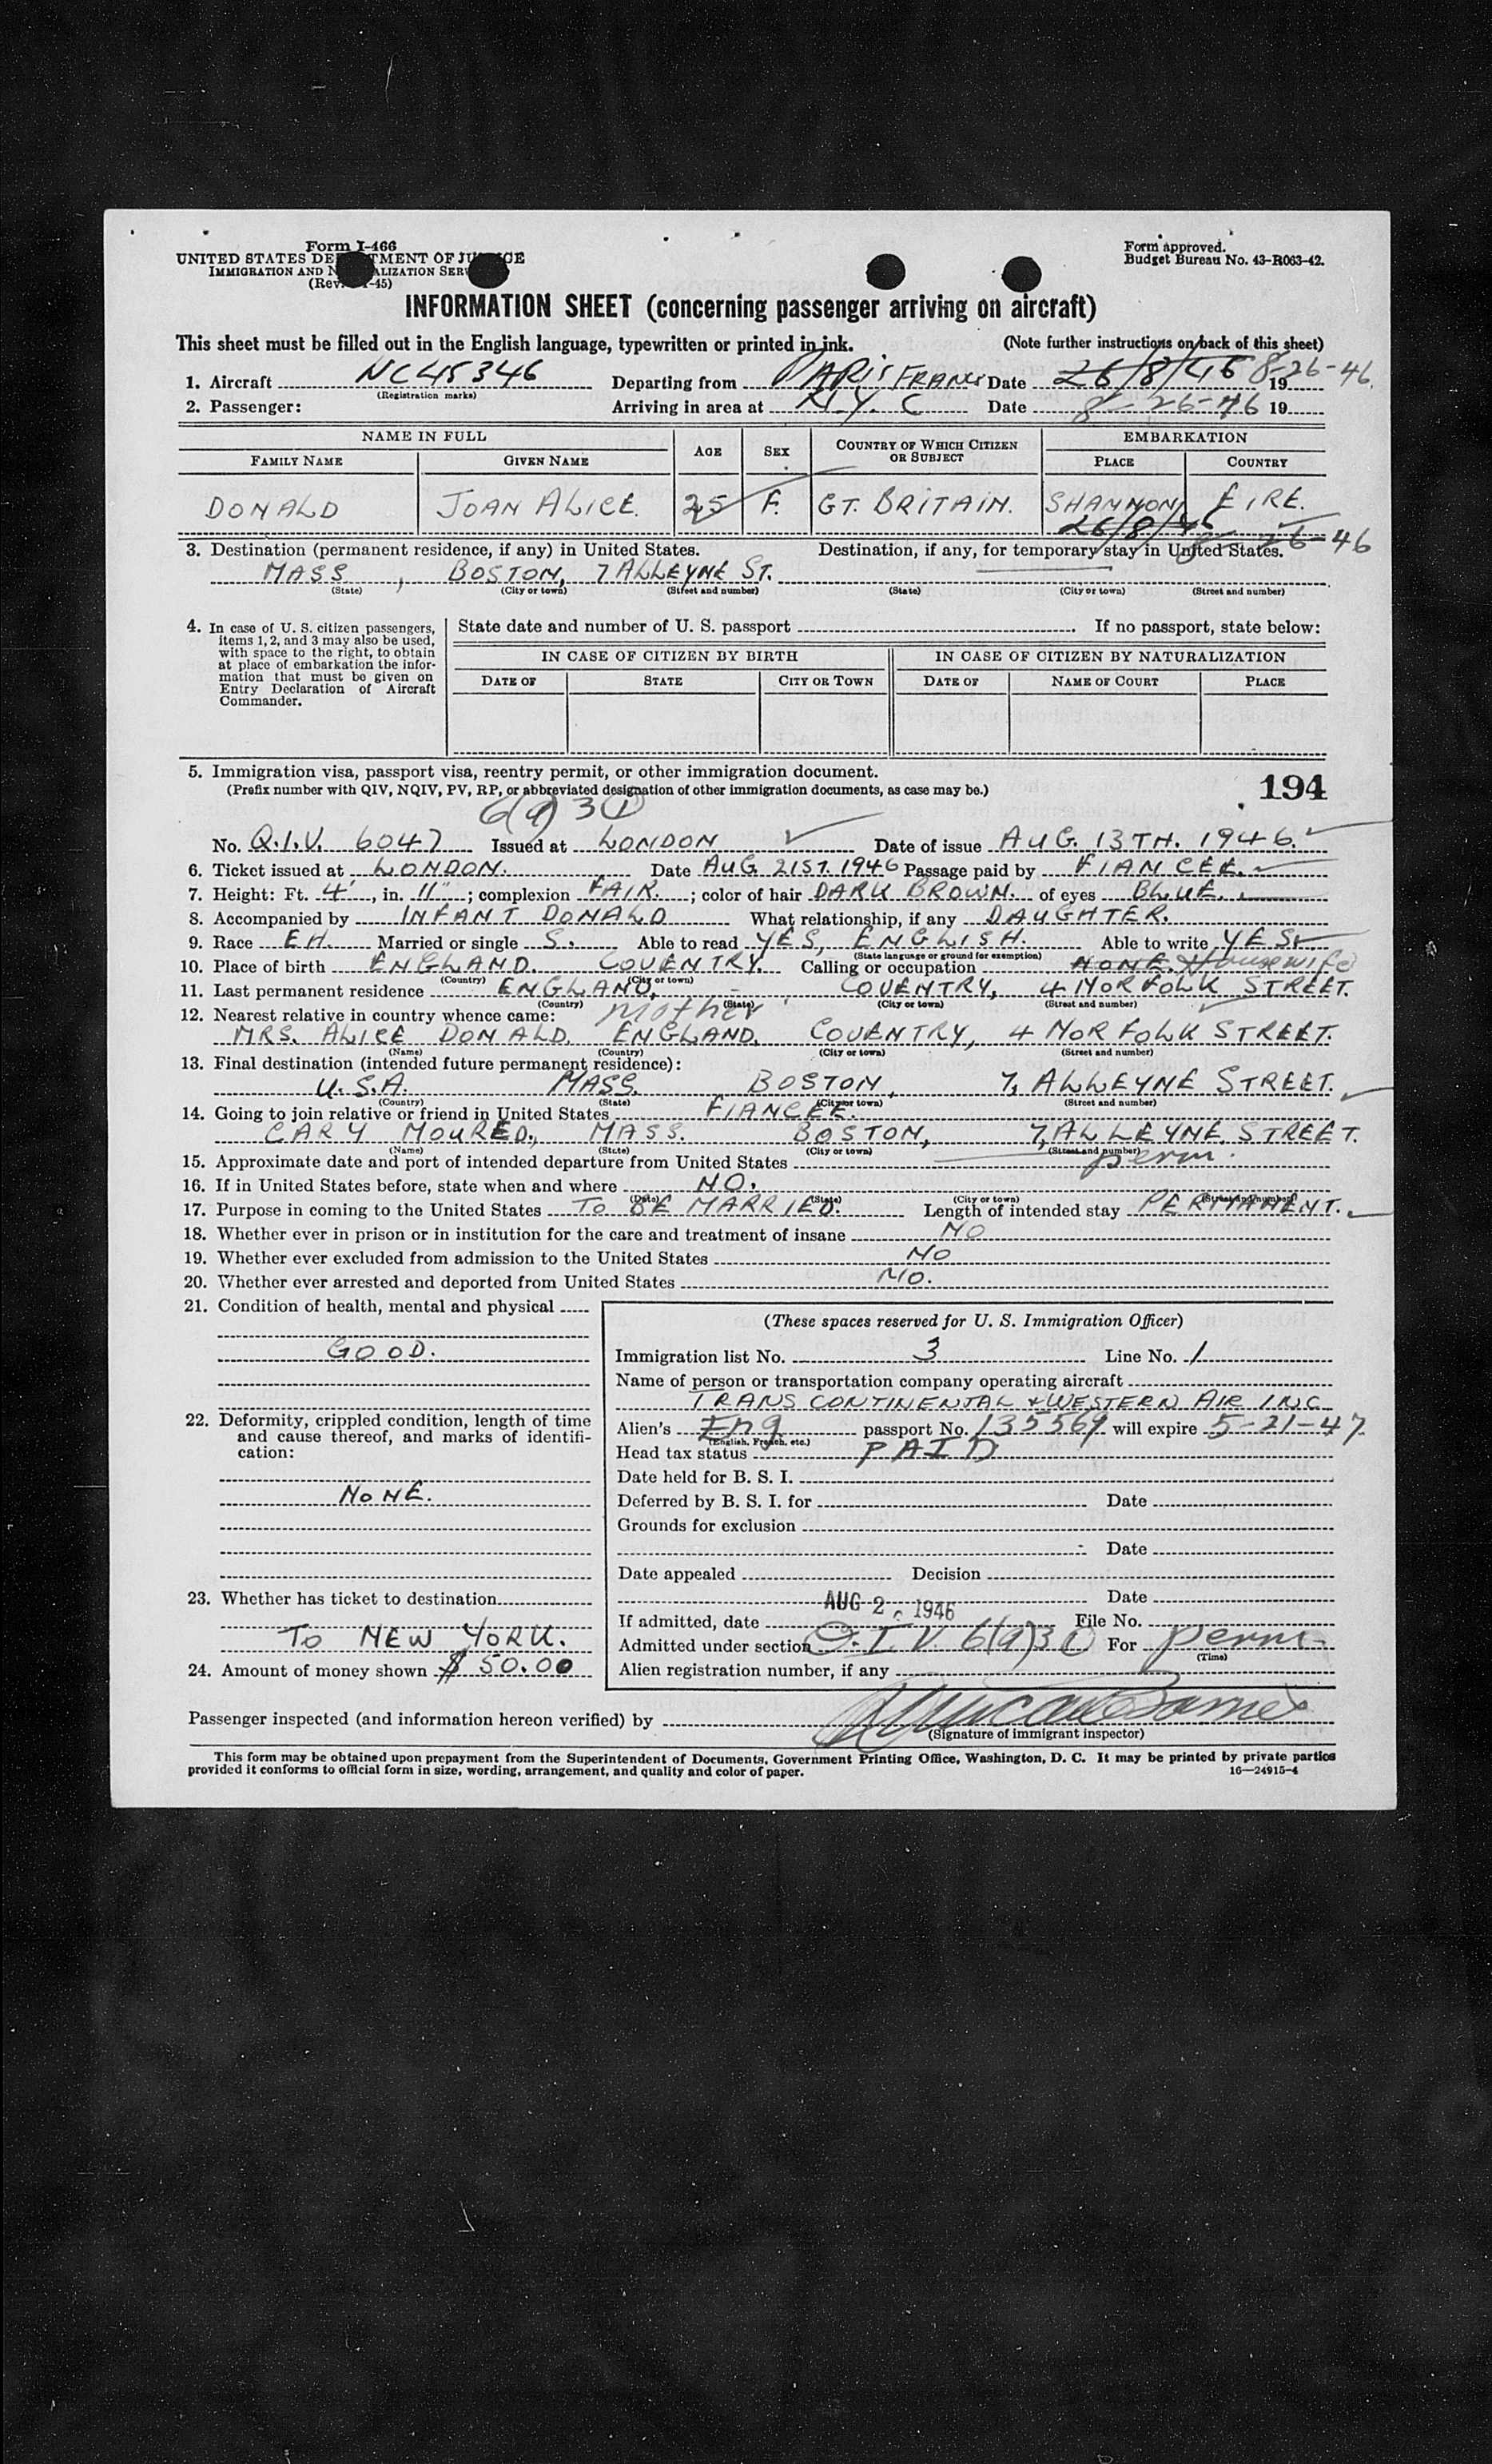 Form I-466
UNITED STATES DEPARTMENT OF JUSTICE
IMMIGRATION AND NATURALIZATION SERVICE
(Rev. -45)
Form approved.
Budget Bureau No. 43-R063-42.
INFORMATION SHEET (concerning passenger arriving on aircraft)
This sheet must be filled out in the English language, typewritten or printed in ink. (Note further instructions on back of this sheet)
1. Aircraft NC45346 Departing from PARIS FRANCE Date 26/8/46 19 8-26-46
(Registration marks)
2. Passenger: Arriving in area at N.Y.C Date 8-26-46 19
NAME IN FULL AGE SEX COUNTRY OF WHICH CITIZEN OR SUBJECT EMBARKATION
FAMILY NAME GIVEN NAME PLACE COUNTRY
DONALD JOAN ALICE. 25 F. GT. BRITAIN. SHANNON EIRE.
26/8/46 8-26-46
3. Destination (permanent residence, if any) in United States. Destination, if any, for temporary stay in United States.
MASS, BOSTON, 7 ALLEYNE ST.
(State) (City or town) (Street and number) (State) (City or town) (Street and number)
4. In case of U. S. citizen passengers, items 1, 2, and 3 may also be used, with space to the right, to obtain at place of embarkation the information that must be given on Entry Declaration of Aircraft Commander.
State date and number of U. S. passport If no passport, state below:
IN CASE OF CITIZEN BY BIRTH IN CASE OF CITIZEN BY NATURALIZATION
DATE OF STATE CITY OR TOWN DATE OF NAME OF COURT PLACE
5. Immigration visa, passport visa, reentry permit, or other immigration document.
(Prefix number with QIV, NQIV, PV, RP, or abbreviated designation of other immigration documents, as case may be.)
194
6(a)3(1)
No. Q.I.V. 6047 Issued at LONDON Date of issue AUG. 13TH. 1946.
6. Ticket issued at LONDON. Date AUG 21ST. 1946 Passage paid by FIANCEE.
7. Height: Ft. 4', in. 11"; complexion FAIR.; color of hair DARK BROWN. of eyes BLUE.
8. Accompanied by INFANT DONALD What relationship, if any DAUGHTER.
9. Race EH. Married or single S. Able to read YES, ENGLISH. Able to write YES
(State language or ground for exemption)
10. Place of birth ENGLAND. COVENTRY. Calling or occupation NONE. Housewife
(Country) (City or town)
11. Last permanent residence ENGLAND, - COVENTRY, 4 NORFOLK STREET.
(Country) (State) (City or town) (Street and number)
12. Nearest relative in country whence came: Mother
MRS. ALICE DONALD. ENGLAND. COVENTRY, 4 NORFOLK STREET.
(Name) (Country) (City or town) (Street and number)
13. Final destination (intended future permanent residence):
U.S.A. MASS. BOSTON, 7, ALLEYNE STREET.
(Country) (State) (City or town) (Street and number)
14. Going to join relative or friend in United States FIANCEE.
CARY MOURED, MASS. BOSTON, 7, ALLEYNE STREET.
(Name) (State) (City or town) (Street and number)
15. Approximate date and port of intended departure from United States perm.
16. If in United States before, state when and where NO.
(Date) (State) (City or town) (Street and number)
17. Purpose in coming to the United States TO BE MARRIED. Length of intended stay PERMANENT.
18. Whether ever in prison or in institution for the care and treatment of insane NO
19. Whether ever excluded from admission to the United States NO
20. Whether ever arrested and deported from United States NO.
21. Condition of health, mental and physical
GOOD.
22. Deformity, crippled condition, length of time and cause thereof, and marks of identification:
NONE.
23. Whether has ticket to destination
TO NEW YORK.
24. Amount of money shown $ 50.00
(These spaces reserved for U. S. Immigration Officer)
Immigration list No. 3 Line No. 1
Name of person or transportation company operating aircraft
TRANS CONTINENTAL & WESTERN AIR INC
Alien's Eng passport No. 135569 will expire 5-21-47
(English, French, etc.)
Head tax status PAID
Date held for B. S. I.
Deferred by B. S. I. for Date
Grounds for exclusion
Date
Date appealed Decision
Date
AUG 2 1946
If admitted, date File No.
Admitted under section Q.I.V. 6(a)3(1) For perm
(Time)
Alien registration number, if any
Passenger inspected (and information hereon verified) by
(Signature of immigrant inspector)
This form may be obtained upon prepayment from the Superintendent of Documents, Government Printing Office, Washington, D. C. It may be printed by private parties
provided it conforms to official form in size, wording, arrangement, and quality and color of paper. 16—24915-4